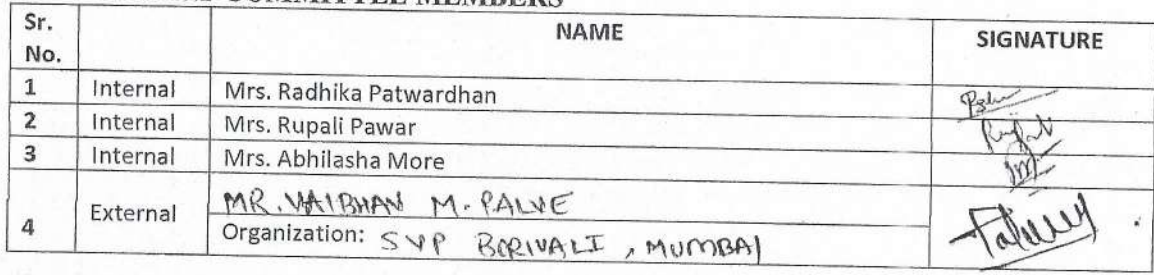 COMMITTEE MEMBERS
Sr. No. NAME SIGNATURE
1 Internal Mrs. Radhika Patwardhan
2 Internal Mrs. Rupali Pawar
3 Internal Mrs. Abhilasha More
4 External MR. VAIBHAV M. PALVE
Organization: SVP BORIVALI, MUMBAI